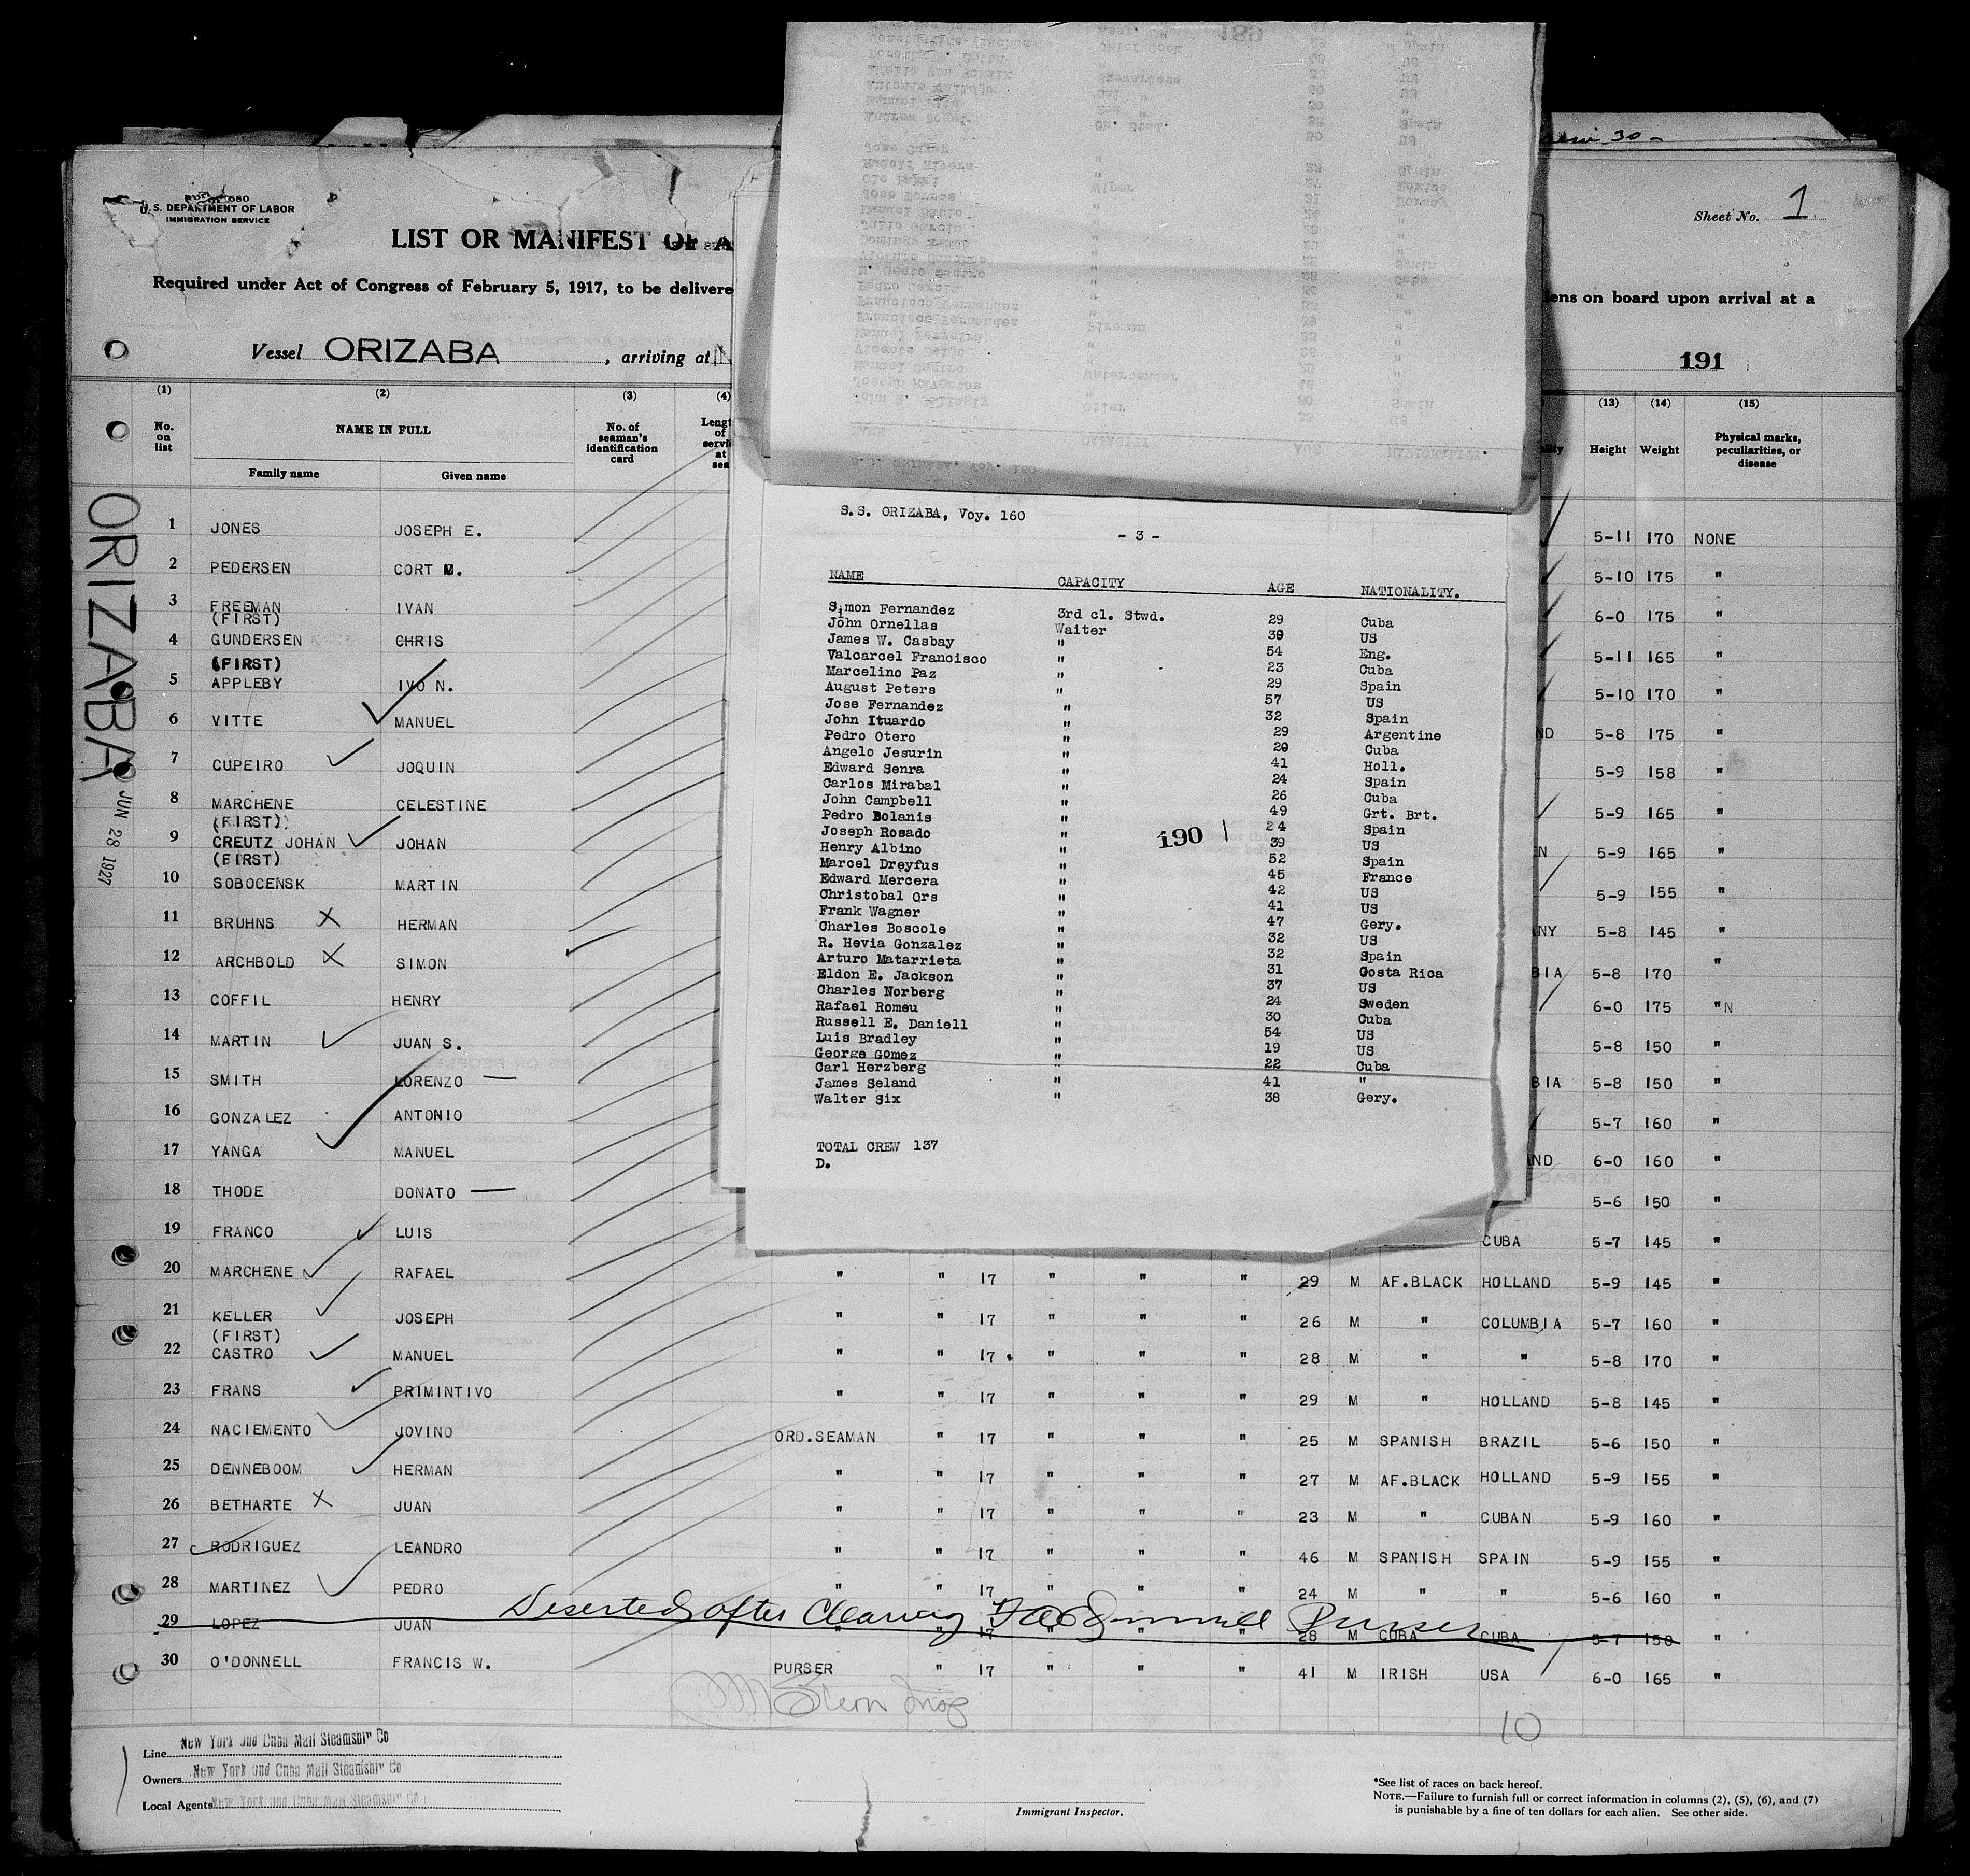 680
U.S. DEPARTMENT OF LABOR
IMMIGRATION SERVICE
LIST OR MANIFEST OF A
Required under Act of Congress of February 5, 1917, to be delivere
Vessel ORIZABA , arriving at
Sheet No. 1
iens on board upon arrival at a
191
(1) (2) (3) (4)
No. on list
NAME IN FULL
Family name Given name
No. of seaman's identification card
(13) (14) (15)
Height Weight Physical marks, peculiarities, or disease
ORIZABA
JUN 28 1927
1 JONES JOSEPH E. 5-11 170 NONE
2 PEDERSEN CORT M. 5-10 175 "
3 FREEMAN IVAN 6-0 175 "
(FIRST)
4 GUNDERSEN CHRIS 5-11 165 "
(FIRST)
5 APPLEBY IVO N. 5-10 170 "
6 VITTE MANUEL ND 5-8 175 "
7 CUPEIRO JOQUIN 5-9 158 "
8 MARCHENE CELESTINE 5-9 165 "
(FIRST)
9 CREUTZ JOHAN JOHAN N 5-9 165 "
(FIRST)
10 SOBOCENSK MARTIN 5-9 155 "
11 BRUHNS X HERMAN NY 5-8 145 "
12 ARCHBOLD X SIMON BIA 5-8 170 "
13 COFFIL HENRY 6-0 175 " N
14 MARTIN JUAN S. 5-8 150 "
15 SMITH LORENZO — BIA 5-8 150 "
16 GONZALEZ ANTONIO 5-7 160 "
17 YANGA MANUEL ND 6-0 160 "
18 THODE DONATO — 5-6 150 "
19 FRANCO LUIS CUBA 5-7 145 "
20 MARCHENE RAFAEL " " 17 " " " 29 M AF.BLACK HOLLAND 5-9 145 "
21 KELLER JOSEPH " " 17 " " " 26 M " COLUMBIA 5-7 160 "
(FIRST)
22 CASTRO MANUEL " " 17 " " " 28 M " " 5-8 170 "
23 FRANS PRIMINTIVO " " 17 " " " 29 M " HOLLAND 5-8 145 "
24 NACIEMENTO JOVINO ORD.SEAMAN " 17 " " " 25 M SPANISH BRAZIL 5-6 150 "
25 DENNEBOOM HERMAN " " 17 " " " 27 M AF.BLACK HOLLAND 5-9 155 "
26 BETHARTE X JUAN " " 17 " " " 23 M " CUBAN 5-9 160 "
27 RODRIGUEZ LEANDRO " " 17 " " " 46 M SPANISH SPAIN 5-9 155 "
28 MARTINEZ PEDRO " " 17 " " " 24 M " " 5-6 160 "
Deserted after Clearing Purser
29 LOPEZ JUAN " " 17 " " " 28 M CUBA CUBA 5-7 150 "
30 O'DONNELL FRANCIS W. PURSER " 17 " " " 41 M IRISH USA 6-0 165 "
10
Line New York and Cuba Mail Steamship Co
Owners New York and Cuba Mail Steamship Co
Local Agents New York and Cuba Mail Steamship Co
Immigrant Inspector.
*See list of races on back hereof.
NOTE.—Failure to furnish full or correct information in columns (2), (5), (6), and (7)
is punishable by a fine of ten dollars for each alien. See other side.
S.S. ORIZABA, Voy. 160
- 3 -
NAME CAPACITY AGE NATIONALITY.
Simon Fernandez 3rd cl. Stwd. 29 Cuba
John Ornellas Waiter 30 US
James W. Casbay " 54 Eng.
Valcarcel Francisco " 23 Cuba
Marcelino Paz " 29 Spain
August Peters " 57 US
Jose Fernandez " 32 Spain
John Ituardo " 29 Argentine
Pedro Otero " 20 Cuba
Angelo Jesurin " 41 Holl.
Edward Senra " 24 Spain
Carlos Mirabal " 26 Cuba
John Campbell " 49 Grt. Brt.
Pedro Bolanis " 24 Spain
Joseph Rosado " 39 US
Henry Albino " 52 Spain
Marcel Dreyfus " 45 France
Edward Mercera " 42 US
Christobal Ors " 41 US
Frank Wagner " 47 Gery.
Charles Boscole " 32 US
R. Hevia Gonzalez " 32 Spain
Arturo Matarrieta " 31 Costa Rica
Eldon E. Jackson " 37 US
Charles Norberg " 24 Sweden
Rafael Romeu " 30 Cuba
Russell E. Daniell " 54 US
Luis Bradley " 19 US
George Gomez " 22 Cuba
Carl Herzberg " 41 "
James Seland " 38 Gery.
Walter Six "
190
TOTAL CREW 137
D.